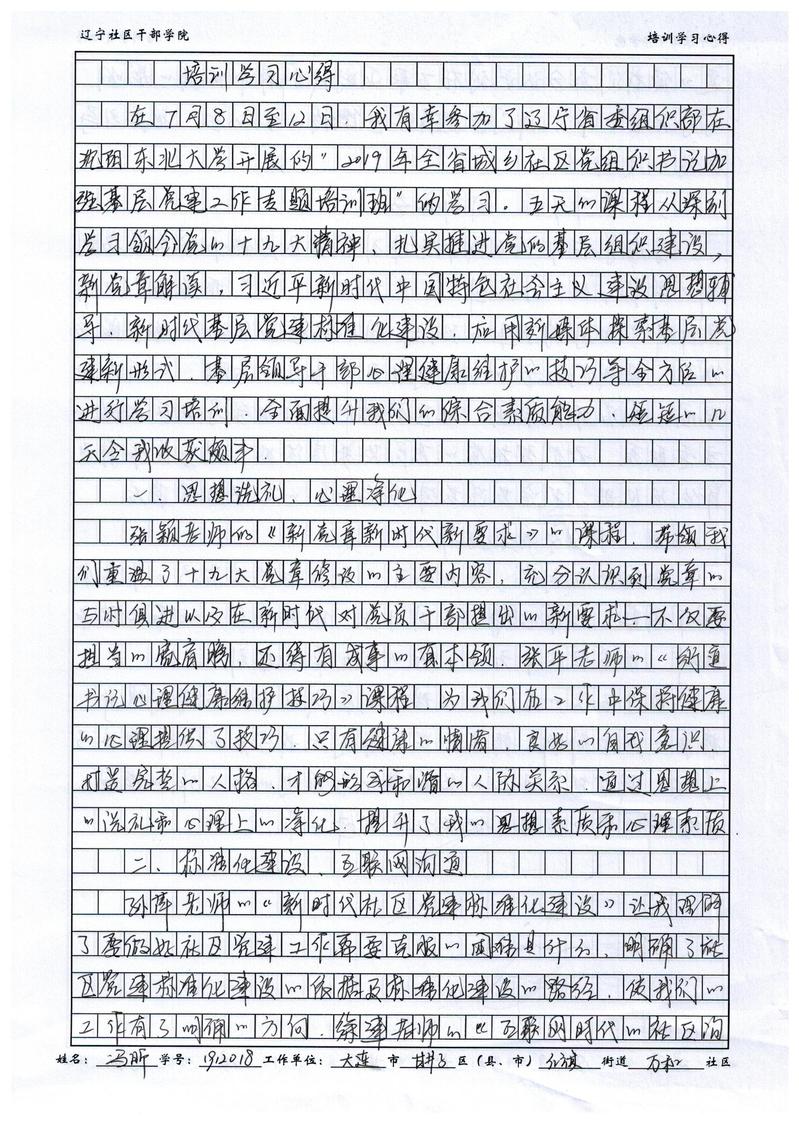 辽宁社区干部学院 培训学习心得
培训学习心得
在7月8日至12日,我有幸参加了辽宁省委组织部在
沈阳东北大学开展的"2019年全省城乡社区党组织书记加
强基层党建工作专题培训班"的学习。五天的课程从深刻
学习领会党的十九大精神、扎实推进党的基层组织建设,
新党章解读,习近平新时代中国特色社会主义建设思想辅
导、新时代基层党建标准化建设、应用新媒体探索基层党
建新形式、基层领导干部心理健康维护的技巧等全方位的
进行学习培训,全面提升我们的综合素质能力,短短的几
天令我收获颇丰。
一、思想洗礼、心理净化
张颖老师的《新党章新时代新要求》的课程,带领我
们重温了十九大党章修改的主要内容,充分认识到党章的
与时俱进以及在新时代对党员干部提出的新要求——不仅要
担当的宽肩膀,还得有成事的真本领。张平老师的《街道
书记心理健康维护技巧》课程 为我们在工作中保持健康
的心理提供了技巧,只有健康的情绪、良好的自我意识、
完整的人格,才能形成和谐的人际关系,通过思想上
的洗礼和心理上的净化,提升了我的思想素质和心理素质
二、标准化建设、互联网沟通
孙萍老师的《新时代社区党建标准化建设》让我理解
了要做好社区党建工作都要克服的困难是什么,明确了社
区党建标准化建设的依据及标准化建设的路径,使我们的
工作有了明确的方向,徐建老师的《互联网时代的社区沟
姓名:冯昕 学号:1912018 工作单位:大连 市 甘井子 区(县、市) 红旗 街道 万和 社区